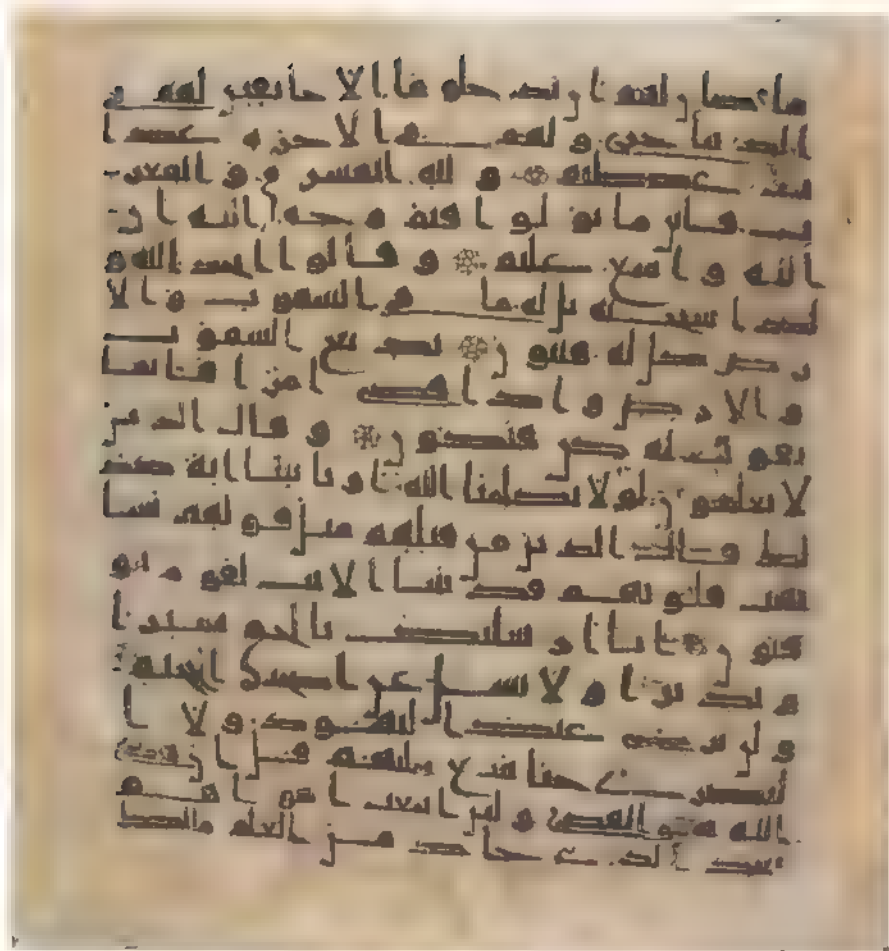 ما كان لهم ان يدخلوها الا خائفين لهم في
الدنيا خزي و لهم في الاخرة عذا
ب عظيم و لله المشرق و المغر
ب فاينما تولوا فثم وجه الله ان
الله و اسع عليم و قالوا اتخذ الله و
لدا سبحنه بل له ما في السموت و الا
رض كل له قنتون بديع السموت
و الارض و اذا قضى امرا فانما
يقول له كن فيكون و قال الذين
لا يعلمون لولا يكلمنا الله او تاتينا اية كذ
لك قال الذين من قبلهم مثل قولهم تشا
بهت قلوبهم قد بينا الايت لقوم يو
قنون انا ارسلنك بالحق بشيرا
و نذيرا و لا تسل عن اصحب الجحيم
و لن ترضى عنك اليهود و لا ا
لنصرى حتى تتبع ملتهم قل ان هدى
الله هو الهدى و لئن اتبعت اهواهم
بعد الذي جاك من العلم مالك